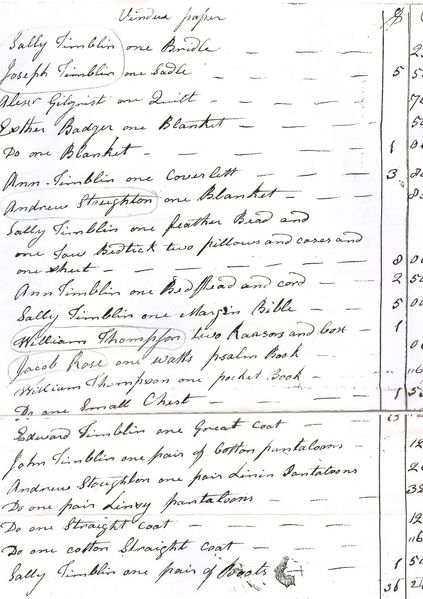 Vendue paper $
Sally Timblin one Bridle
Joseph Timblin one Sadle 5
Alexr Gilqrist one Quilt
Esther Badger one Blanket
Do one Blanket 1
Ann Timblin one Coverlett 3
Andrew Stoughton one Blanket
Sally Timblin one feather Bead and
one Tow Bedtick two pillows and cases and
one sheet 8
Ann Timblin one Bedstead and cord 2 50
Sally Timblin one Margin Bible 5
William Thompson two Raasors and box 1
Jacob Rose one watts psalm Book
William Thompson one pocket Book
Do one Small Chest 1
Edward Timblin one Great Coat 13
John Timblin one pair of Cotton pantaloons
Andrew Stoughton one pair Linin Pantaloons
Do one pair Linsy pantaloons
Do one Straight coat
Do one cotton Straight coat
Sally Timblin one pair of Boots 1
36